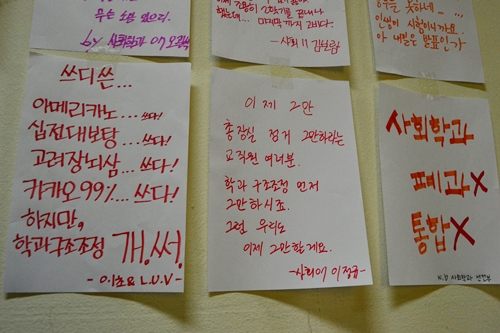 무슨 소용 있으리.
by 사회학과 09
마지막까지 2바다.
-사회 11 김보람
인생이 시험이니까요.
쓰디쓴...
아메리카노... 쓰다!
십전대보탕 ...쓰다!
고려장뇌삼...쓰다!
카카오99%...쓰다!
하지만,
학과구조조정 개.써.
- 이초& L.U.V -
이제 그만
총장실 점거 그만하라는
교직원 여러분.
학과 구조조정 먼저
그만하시죠.
그럼 우리도
이제 그만할게요.
-사회 07 이정규-
사회학과
폐과X
통합X
K.U 사회학과